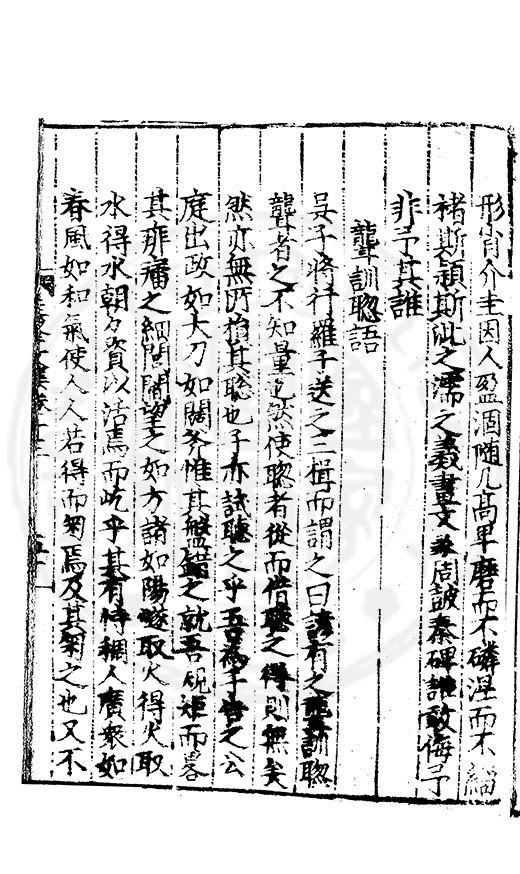 形肖介圭因人盈涸随几高卑磨而不磷涅而不緇
褚斯穎斯泚之濡之羲畫文彖周鼓秦碑誰敢侮予
非予其誰
聾訓聰語
吳子將行羅子送之三揖而謂之曰諺有之聾訓聰
聾者之不知量也然使聰者從而借聽之得則無矣
然亦無所損其聰也子亦試聽之乎吾為子告之公
庭出政如大刀如闊斧惟其盤錯之就吾規矩而畧
其藩之細閭閻望之如方諸如陽燧取火得火取
水得水朝夕資以活焉而屹乎其有特稠人廣衆如
春風如和氣使人人若得而匊焉及其匊之也又不